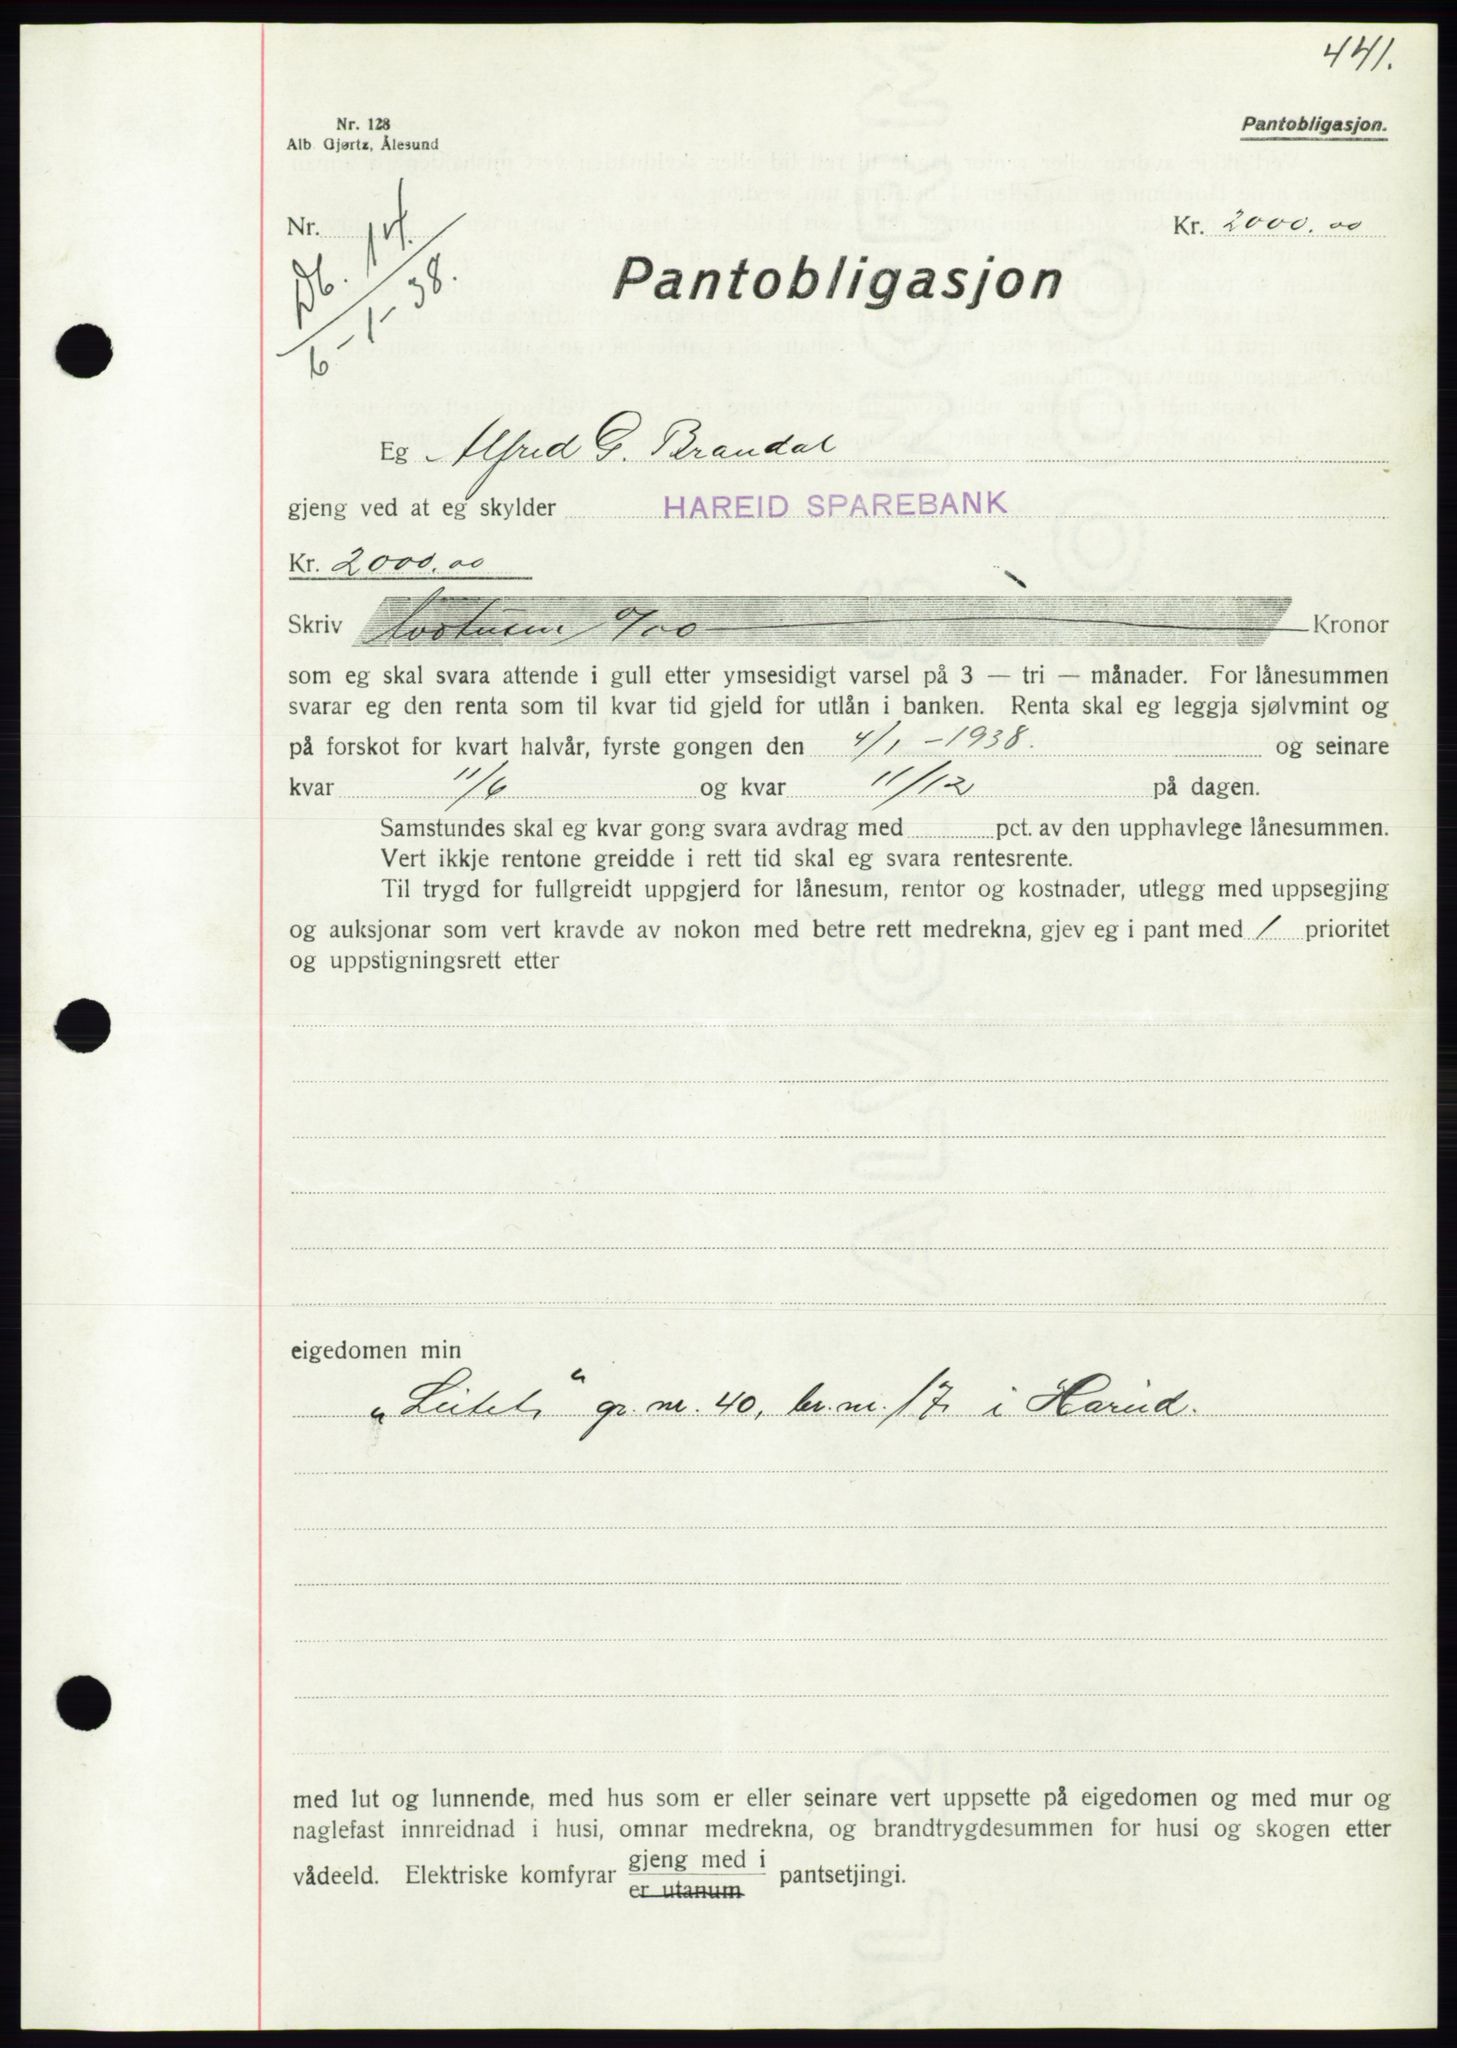 441.
Nr. 128
Alb. Gjørtz, Ålesund
Pantobligasjon.
Nr.
Db. 14.
6-1-38.
Kr. 2000.00
Pantobligasjon
Eg Alfred G. Brandal
gjeng ved at eg skylder HAREID SPAREBANK
Kr. 2000.00
Skriv totusen 0/00 Kronor
som eg skal svara attende i gull etter ymsesidigt varsel på 3 — tri — månader. For lånesummen
svarar eg den renta som til kvar tid gjeld for utlån i banken. Renta skal eg leggja sjølvmint og
på forskot for kvart halvår, fyrste gongen den 4/1-1938. og seinare
kvar 11/6 og kvar 11/12 på dagen.
Samstundes skal eg kvar gong svara avdrag med pct. av den upphavlege lånesummen.
Vert ikkje rentone greidde i rett tid skal eg svara rentesrente.
Til trygd for fullgreidt uppgjerd for lånesum, rentor og kostnader, utlegg med uppsegjing
og auksjonar som vert kravde av nokon med betre rett medrekna, gjev eg i pant med 1 prioritet
og uppstigningsrett etter
eigedomen min
"Leitet" gr. nr. 40, br. nr. 17 i Hareid.
med lut og lunnende, med hus som er eller seinare vert uppsette på eigedomen og med mur og
naglefast innreidnad i husi, omnar medrekna, og brandtrygdesummen for husi og skogen etter
vådeeld. Elektriske komfyrar gjeng med i pantsetjingi.
er utanum